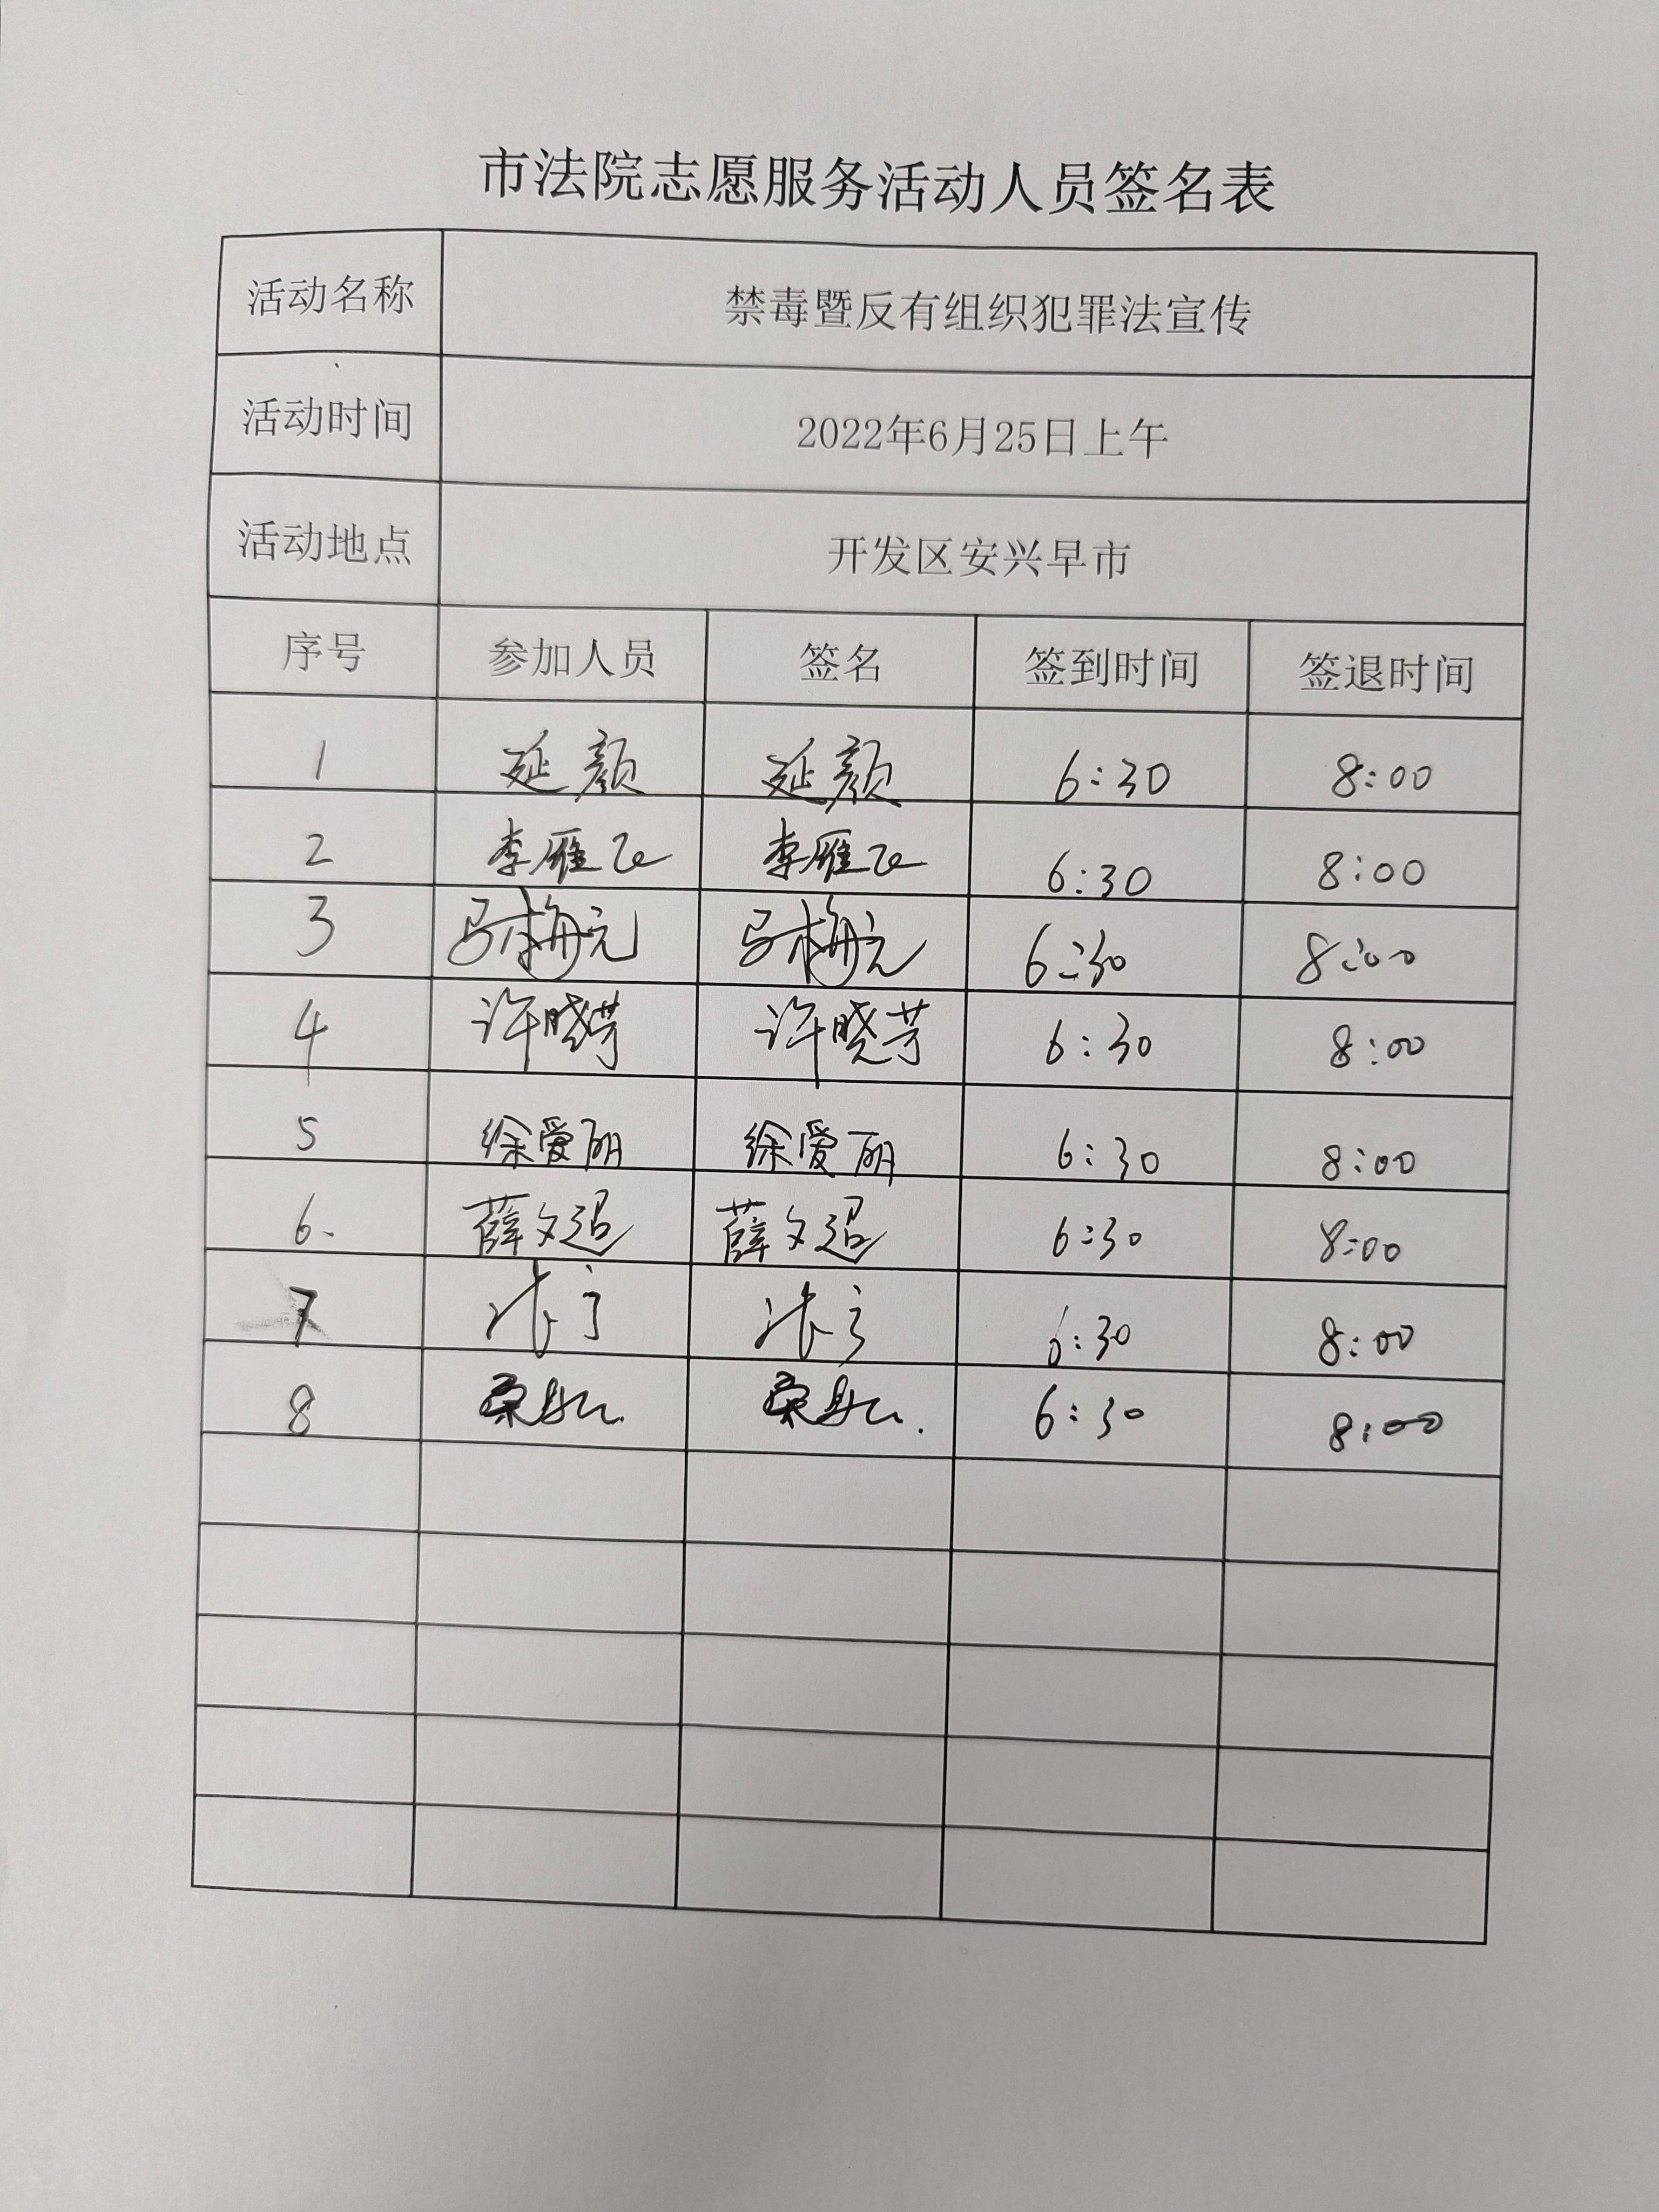 市法院志愿服务活动人员签名表
活动名称 禁毒暨反有组织犯罪法宣传
活动时间 2022年6月25日上午
活动地点 开发区安兴早市
序号 参加人员 签名 签到时间 签退时间
1 延颜 延颜 6:30 8:00
2 李雁飞 李雁飞 6:30 8:00
3 马梅元 马梅元 6:30 8:00
4 许晓芳 许晓芳 6:30 8:00
5 徐爱丽 徐爱丽 6:30 8:00
6. 薛文超 薛文超 6:30 8:00
7 6:30 8:00
8 6:30 8:00